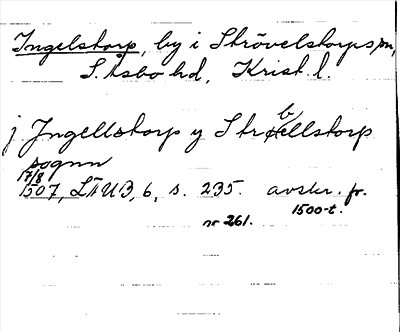 Ingelstorp, by i Strövelstorps sn,
S. Åsbo hd, Krist. l.
j Jngellstorp y Strøbellstorp
sognn
17/8
1507, LÄUB, 6, s. 235. avskr. fr.
1500-t.
nr 261.